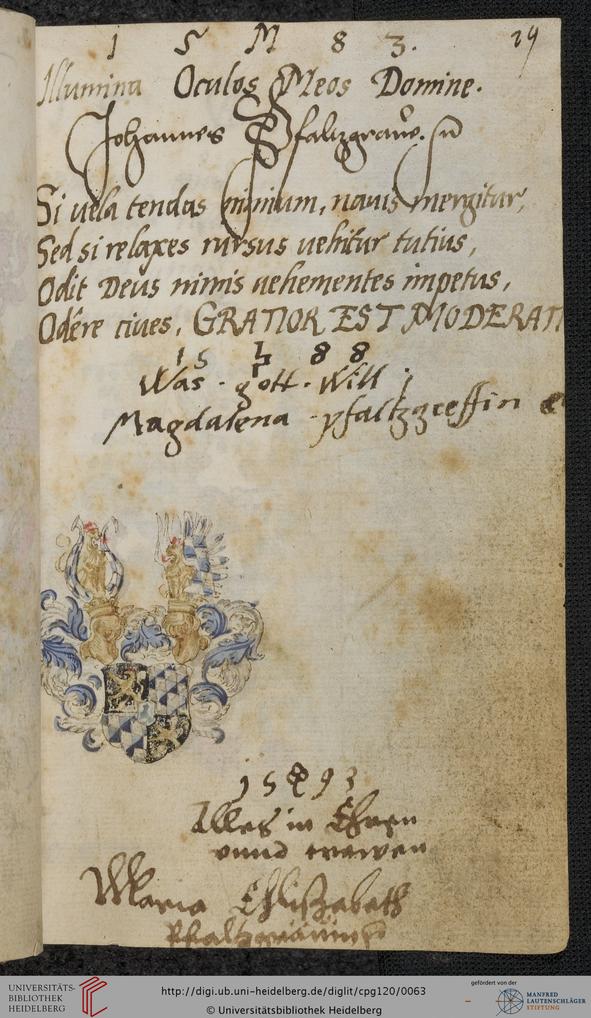 1 5 M 8 3.
29
Illumina Oculos Meos Domine.
Johannes Pfaltzgrave.
Si vela tendas nimium, navis mergitur,
Sed si relaxes rursus vehitur tutius,
Odit Deus nimis vehementes impetus,
Odêre cives, GRATIOR EST MODERATI
1 5 8 8
Was · gott · Will
Magdalena pfaltzgreffin
15 93
Alles in Ehren
vnnd trewen
Maria Ehlißabeth
Pfaltzgräuin
UNIVERSITÄTS-
BIBLIOTHEK
HEIDELBERG
http://digi.ub.uni-heidelberg.de/diglit/cpg120/0063
© Universitätsbibliothek Heidelberg
gefördert von der
MANFRED
LAUTENSCHLÄGER
STIFTUNG